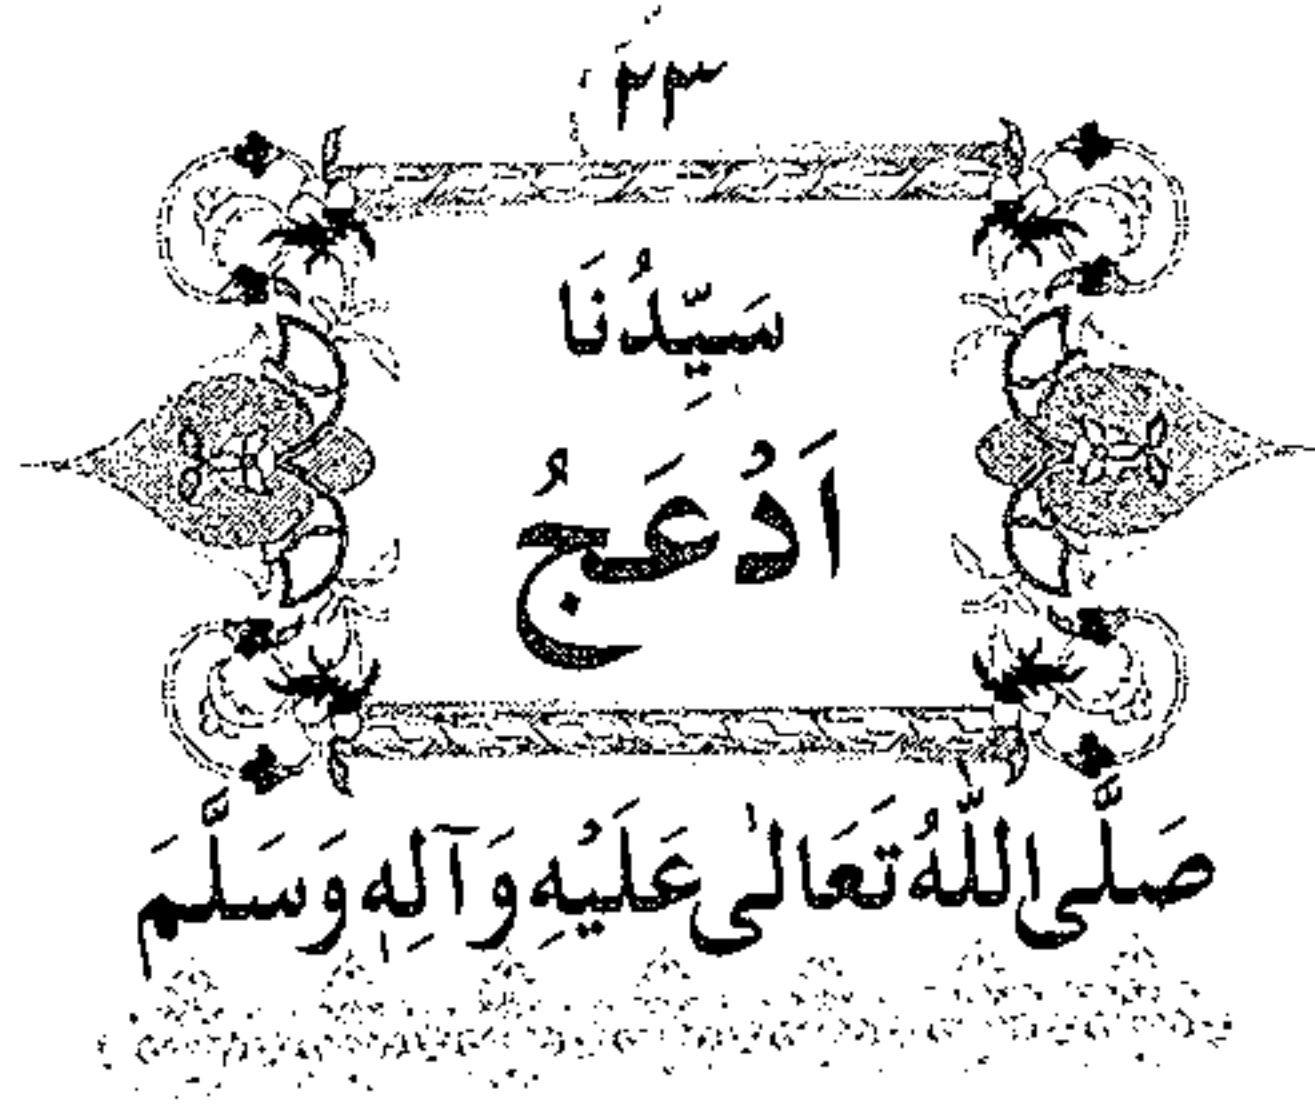 ٢٣
سَيِّدُنَا
اَدْعَجُ
صَلَّى اللّٰهُ تَعَالىٰ عَلَيْهِ وَآلِهٖ وَسَلَّمَ